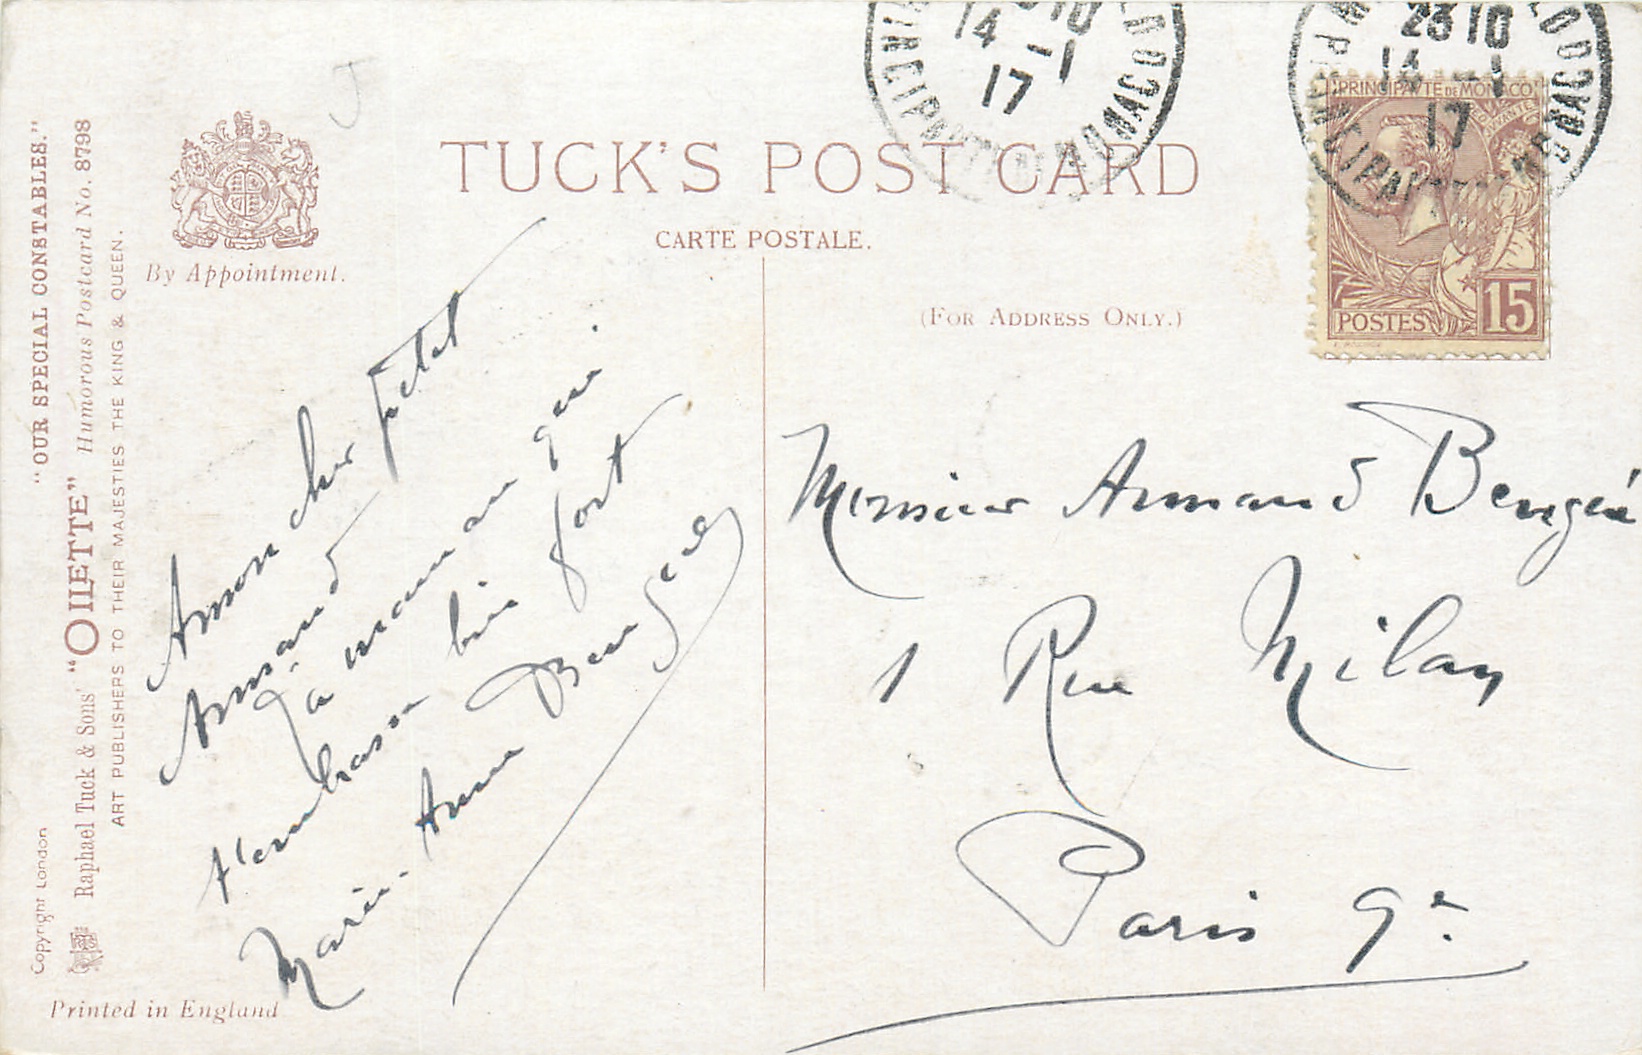 "OUR SPECIAL CONSTABLES."
Raphael Tuck & Sons' "OILETTE" Humorous Postcard No. 8798
ART PUBLISHERS TO THEIR MAJESTIES THE KING & QUEEN.
Copyright London
By Appointment.
TUCK'S POST CARD
CARTE POSTALE.
(FOR ADDRESS ONLY.)
23 10
14 -1
17
PRINCIPAUTÉ DE MONACO
PRINCIPAUTÉ DE MONACO
POSTES
15
A mon cher petit
Armand
à maman qui
t'embrasse bien fort
Marie-Anne
Monsieur Armand
1 Rue Milan
Paris 9e
Printed in England